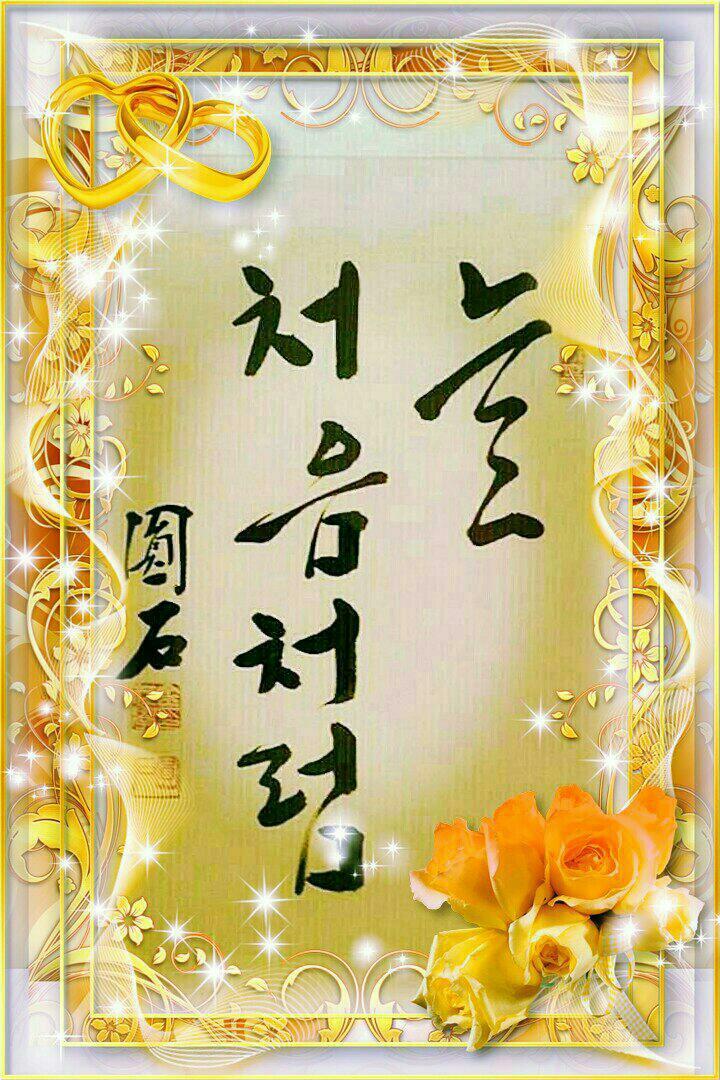 늘
처음처럼
圓石